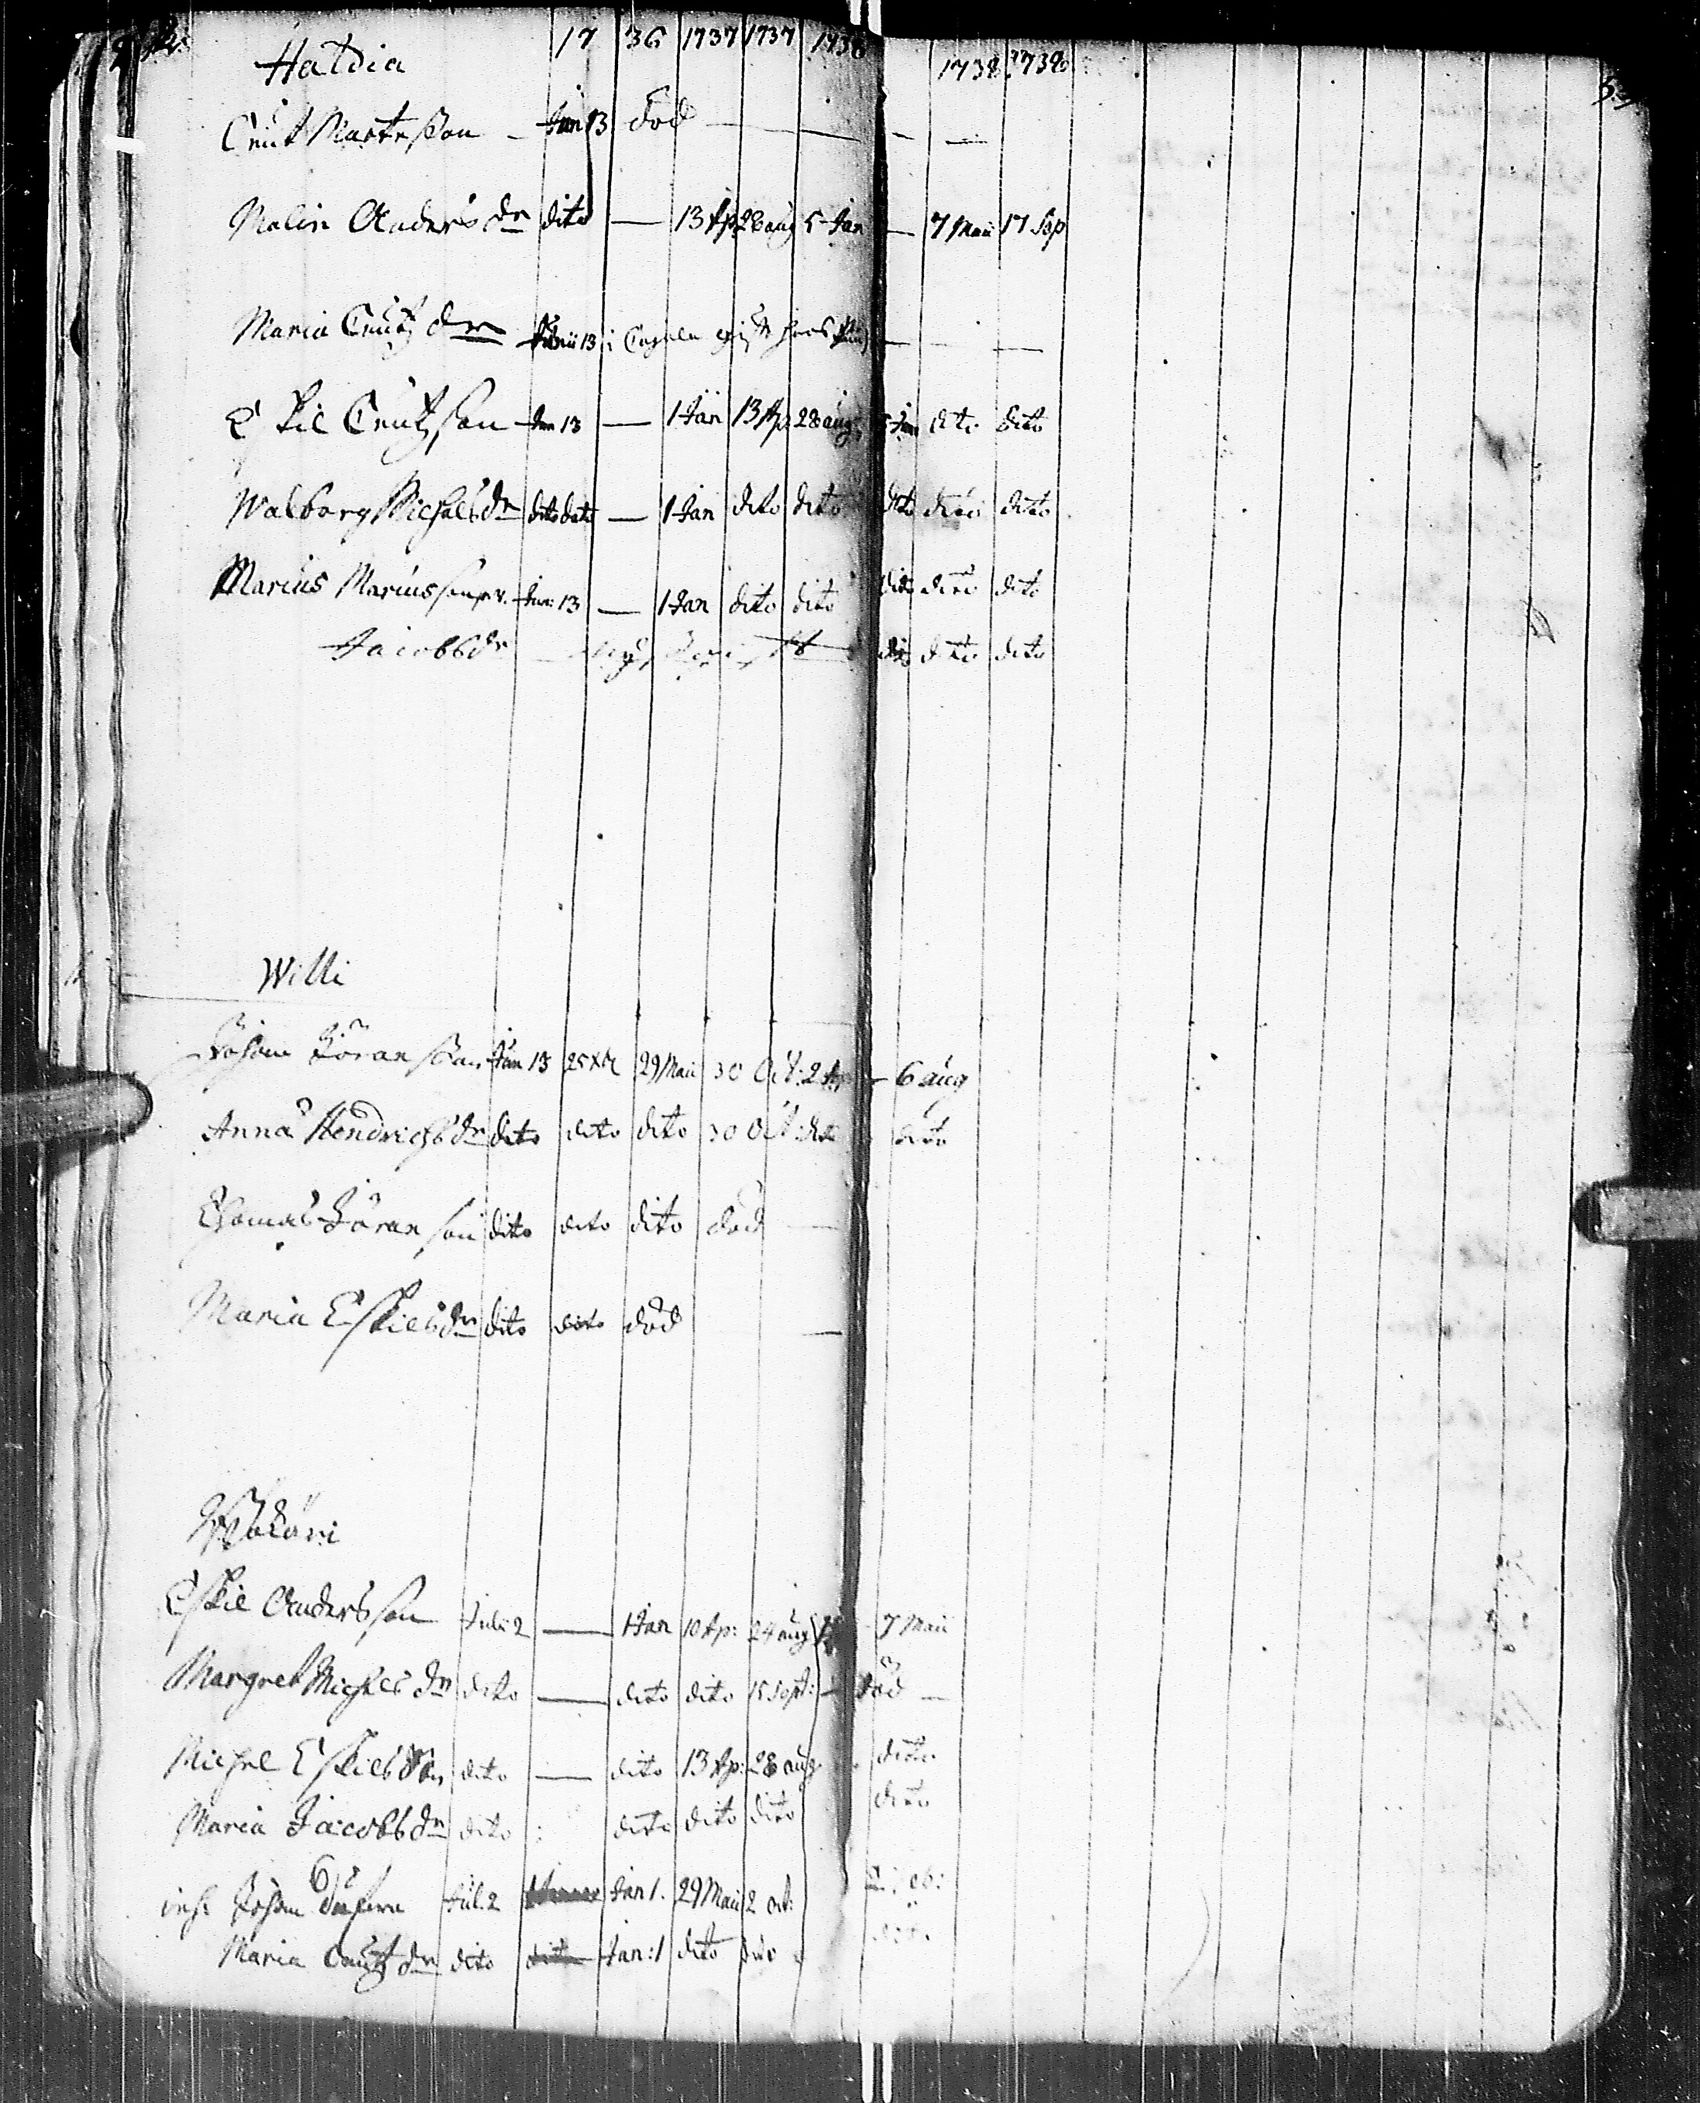 Haldia 17 36 1737 1737 1738 1738 1738
Cnut Martensson Jun 13 död — — — —
Malin Andersdr dito — 13 Ap 28 aug 5 Jan — 7 Maii 17 Sep
Maria Cnutzdr Junii 13 i — —
Eskil Cnutzson Jun 13 — 1 Jan 13 Ap 28 aug 5 Jan dito dito
Walborg Michelsdr dito dito — 1 Jan dito dito dito dito dito
Marcus Marcusson Jun: 13 — 1 Jan dito dito dito dito dito
Jacobsdr dito dito dito
Willi
Johan Göransson Jun 13 25 Xbr 29 Maii 30 Oct: 2 Ap — 6 aug
Anna Hendrichsdr dito dito dito 30 Oct: dito dito
Thomas Göranson dito dito dito död —
Maria Eskilsdr dito dito död —
Eskil Andersson Juli 2 — 1 Jan 10 Ap: 24 aug 7 Maii
Margret Michelsdr dito — dito dito 15 Sept: — död —
Michel Eskilsson dito — dito 13 Ap: 28 aug dito
Maria Jacobsdr dito : dito dito dito dito
inh: Johan Jul: 2 Jan 1. 29 Maii 2 oct:
Maria Cnutzdr dito dito Jan: 1 dito dito dito